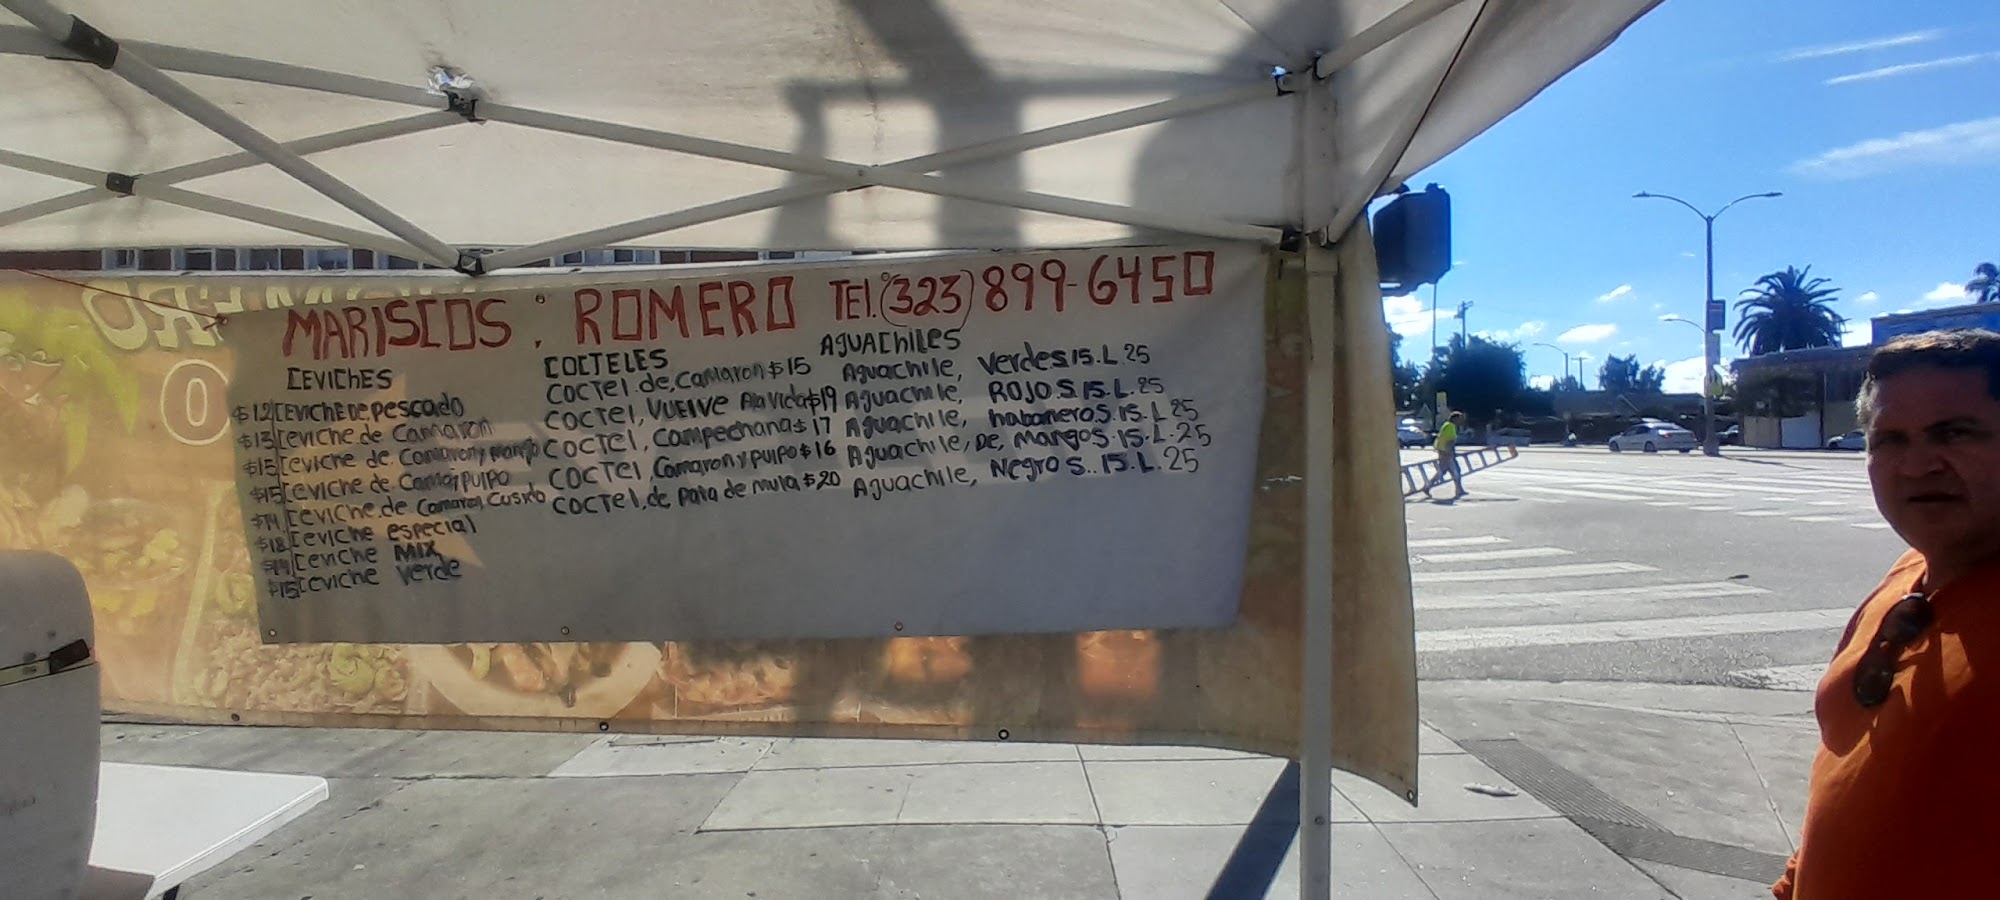 MARISCOS : ROMERO TEL.(323)899-6450
CEVICHES
$12 CEVICHE DE PESCADO
$13 CEVICHE.de Camaron
$15 CEVICHE de Camaron y mango
$15 CEVICHE de Cama, PULPO
$14 CEVICHE.de Camaron Cusido
$18 CEVICHE especial
$14 CEVICHE MIX
$15 CEVICHE Verde
COCTELES
COCTEL.de, CamaRon $15
COCTEL, VUELVE A la Vida $19
COCTEL, Campechana $17
COCTEL, Camaron y pulpo $16
COCTEL, de pata de mula $20
AGUACHILES
Aguachile, Verde S.15.L.25
Aguachile, ROJO.S.15.L.25
Aguachile, habanero.S.15.L.25
Aguachile, DE, Mango S.15.L.25
Aguachile, Negro S..15.L.25